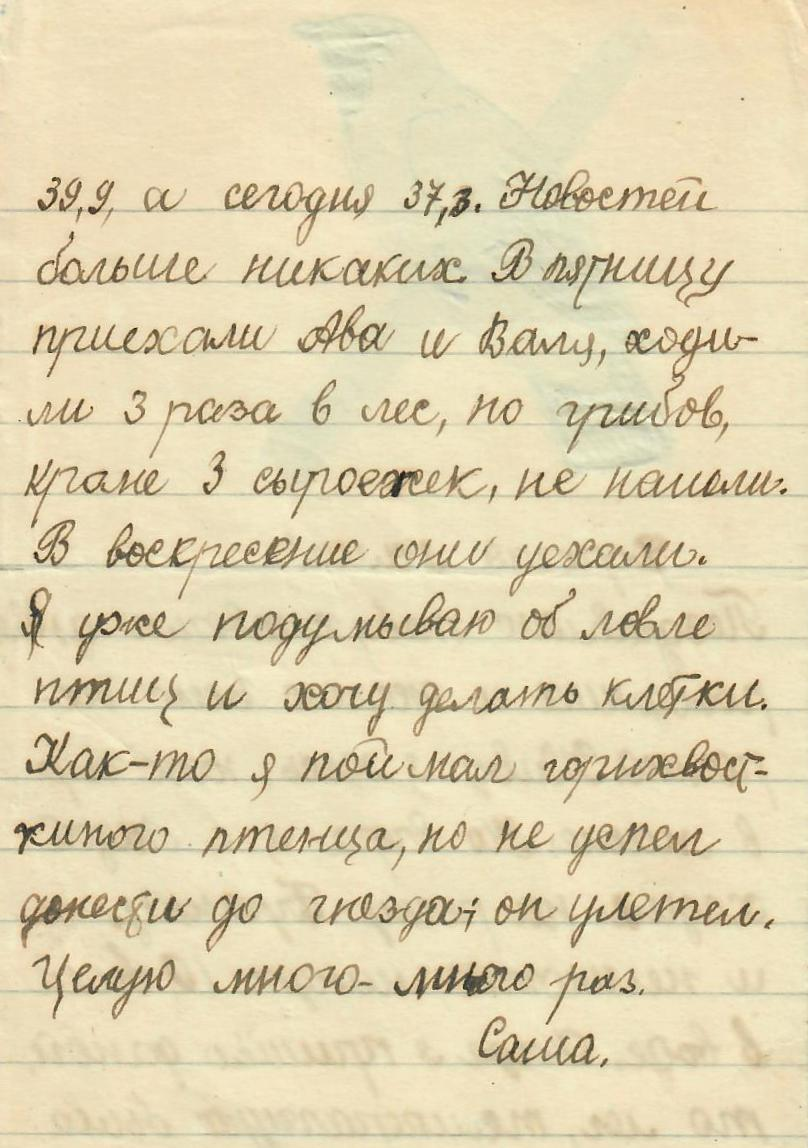 39,9, а сегодня 37,3. Новостей
больше никаких. В пятницу
приехали Ава и Валя, ходи-
ли 3 раза в лес, но грибов,
кроме 3 сыроежек, не нашли.
В воскресение они уехали.
Я уже подумываю об ловле
птиц и хочу делать клетки.
Как-то я поймал горихвост-
киного птенца, но не успел
донести до гнезда; он улетел.
Целую много-много раз.
Саша.